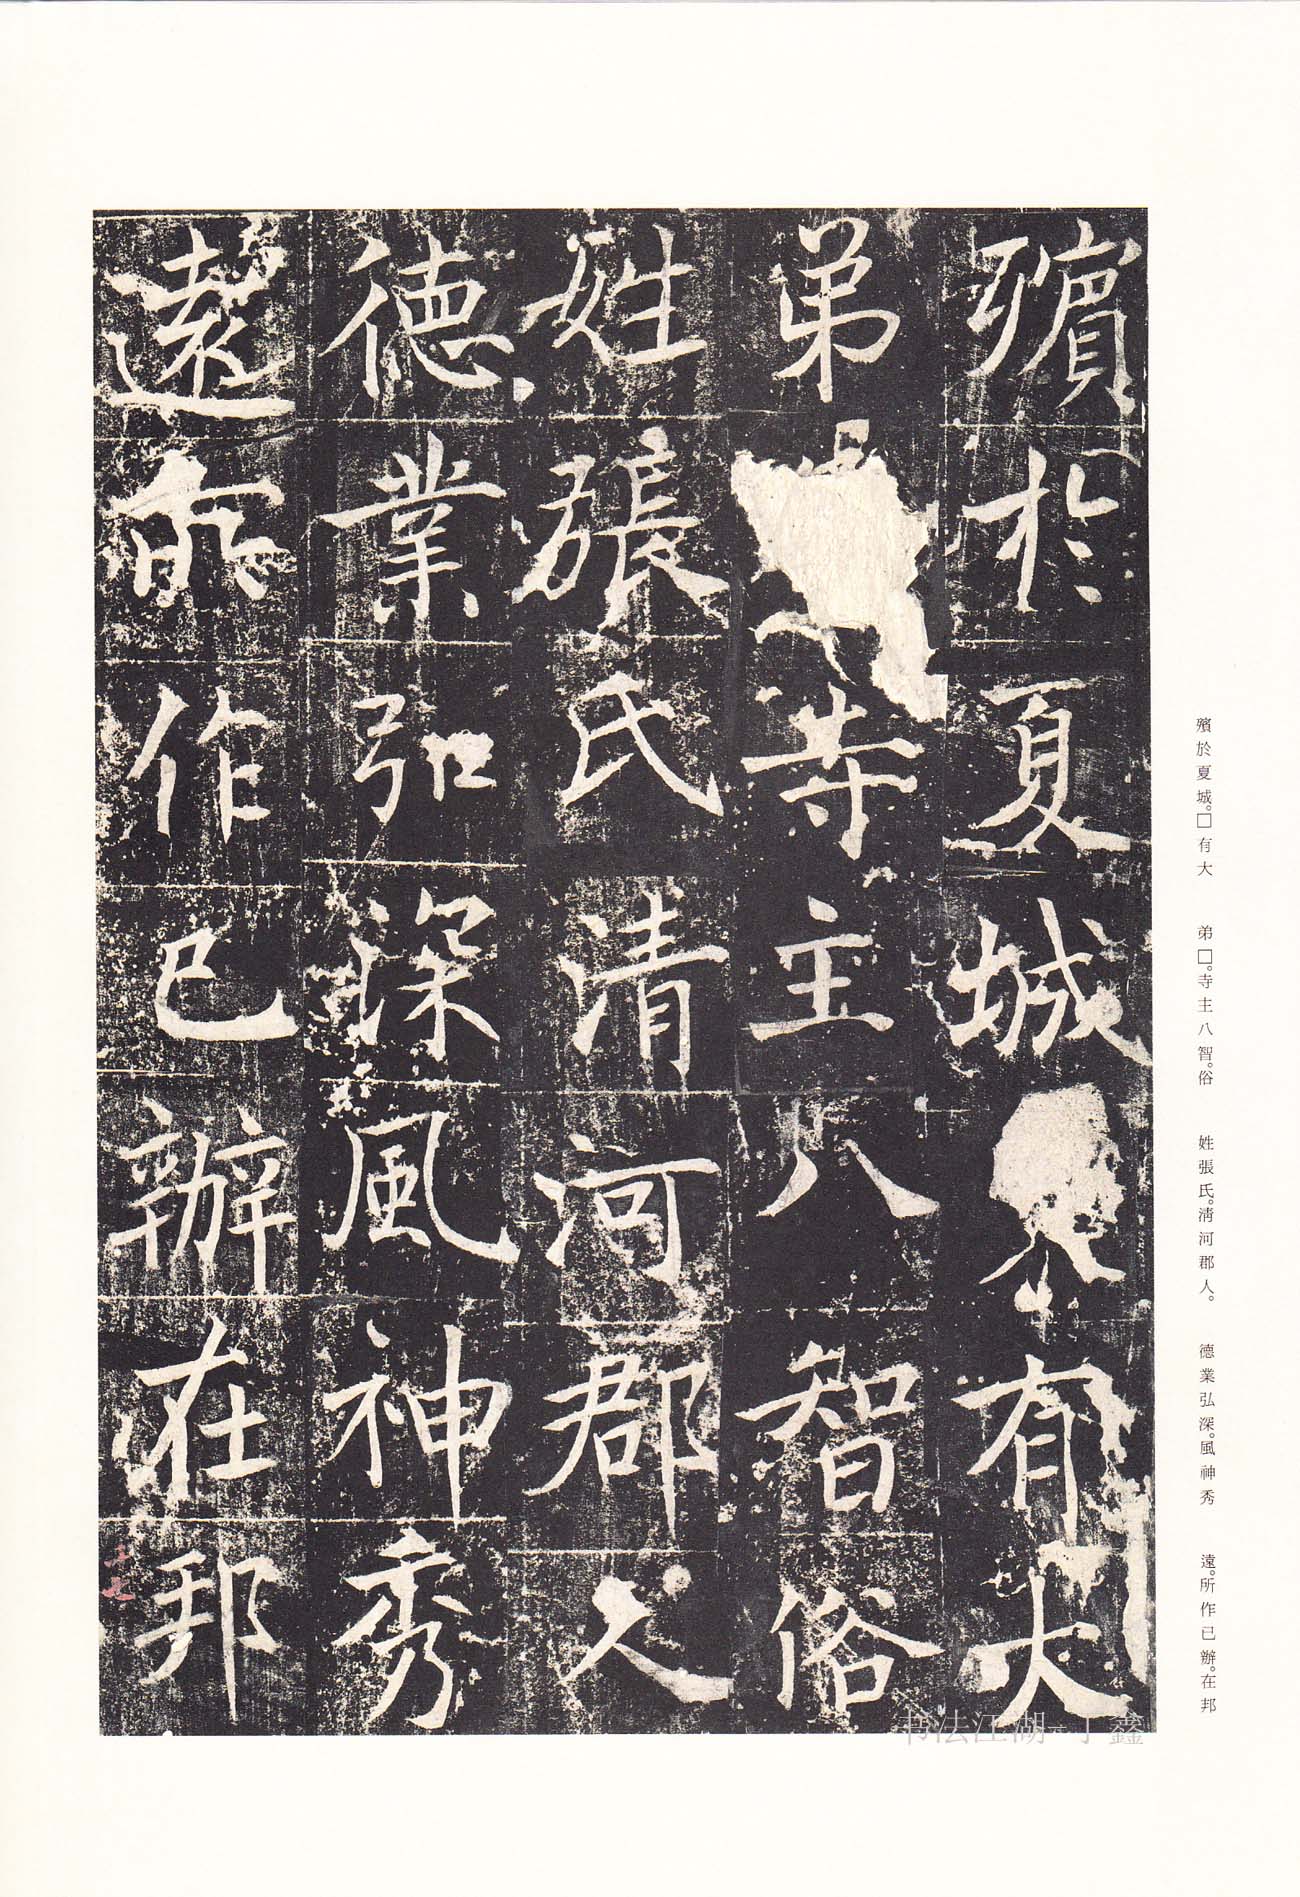 殯於夏城有大
弟寺主八智俗
姓張氏清河郡人
德業弘深風神秀
遠所作已辦在邦
殯於夏城。□有大
弟□。寺主八智。俗
姓張氏。清河郡人。
德業弘深。風神秀
遠。所作已辦。在邦
书法江湖-丁鑫